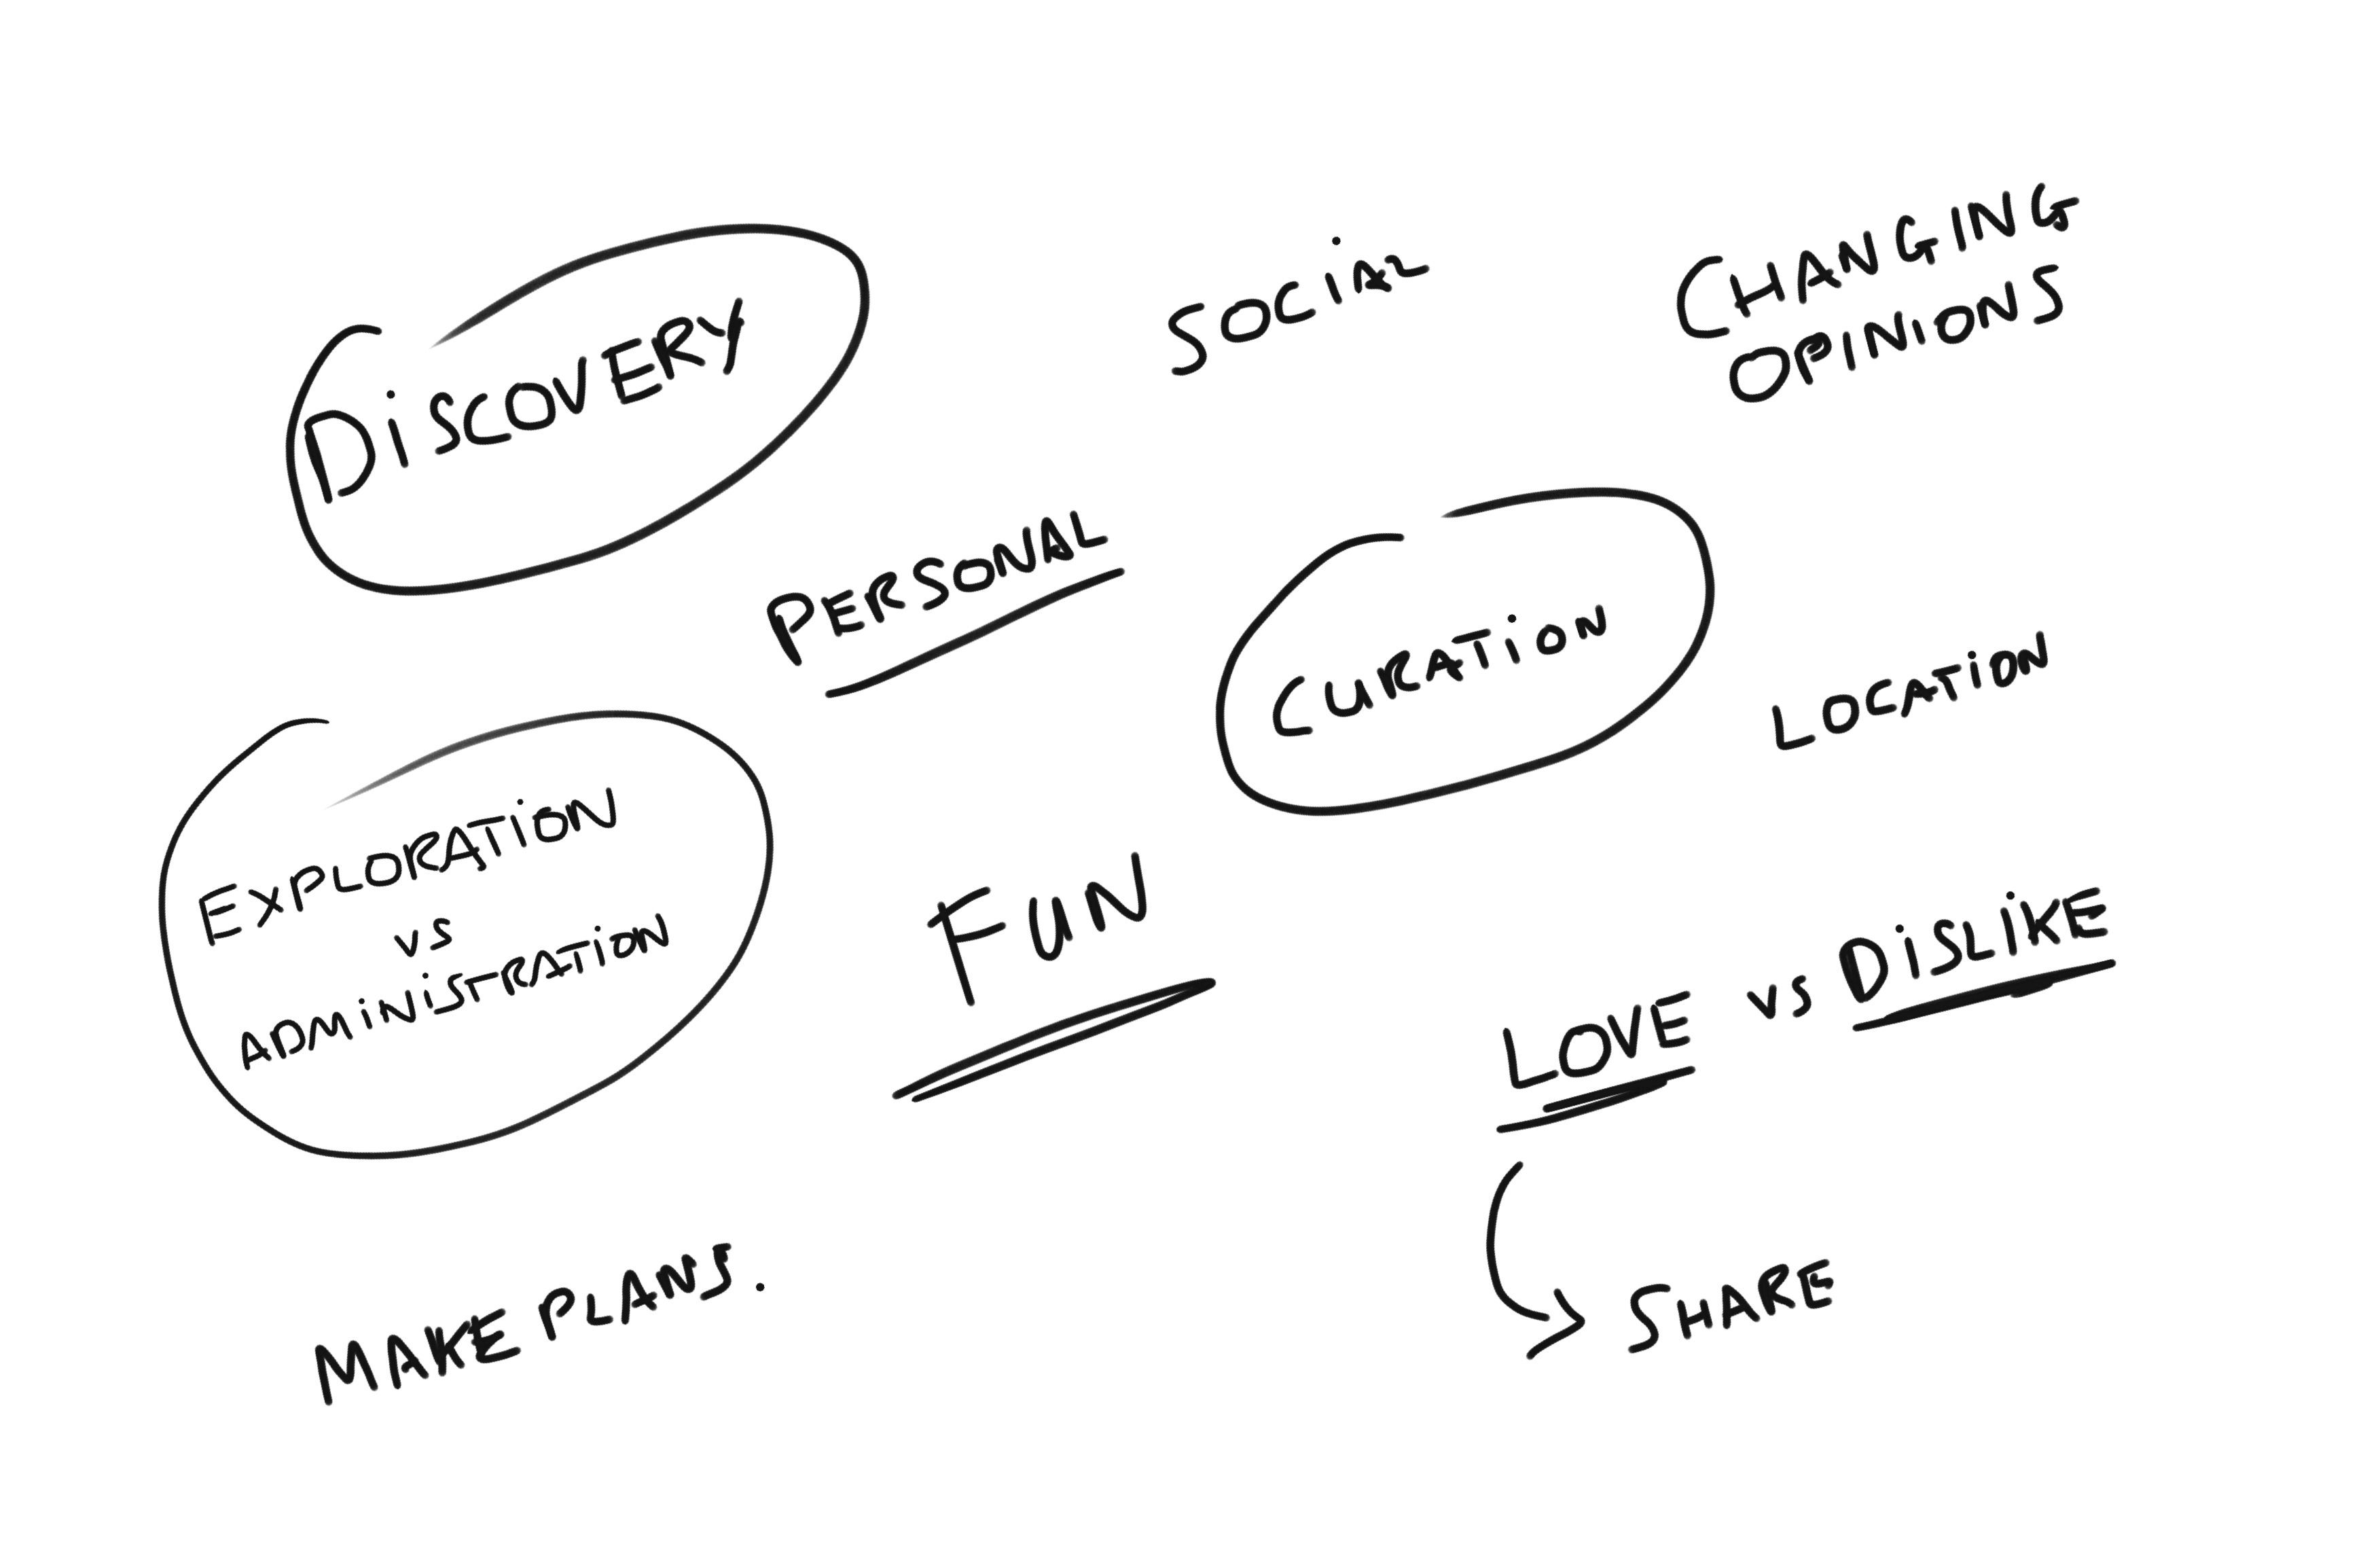 DiSCOVERY
SOCiAL
CHANGING
OPINIONS
PERSONAL
CURATiON
LOCATiON
EXPLORATiON
vs
ADMiNiSTRATiON
FUN
LOVE vs DiSLiKE
SHARE
MAKE PLANS.